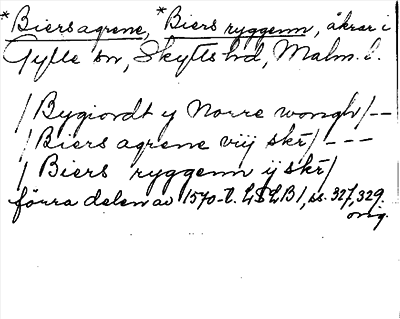 *Biersagrene, *Biers ryggenn, åkrar i
Gylle sn, Skytts hd, Malm. l.
/Bygiordt y Norre wongh/--
/Biers agrene vij skr/ ---
/Biers ryggenn ij skr/
förra delen av 1570-t. LSLB 1, ss. 327, 329.
orig.